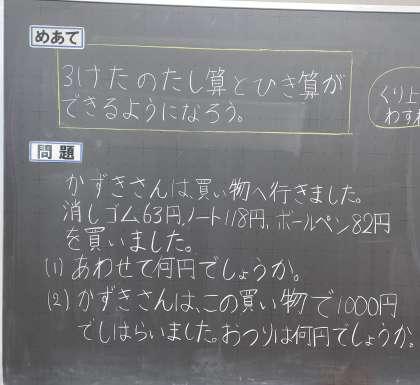 めあて
3けたのたし算とひき算が
できるようになろう。
くり上
わすれ
問題
かずきさんは、買い物へ行きました。
消しゴム63円、ノート118円、ボールペン82円
を買いました。
(1) あわせて何円でしょうか。
(2) かずきさんは、この買い物で1000円
でしはらいました。おつりは何円でしょうか。